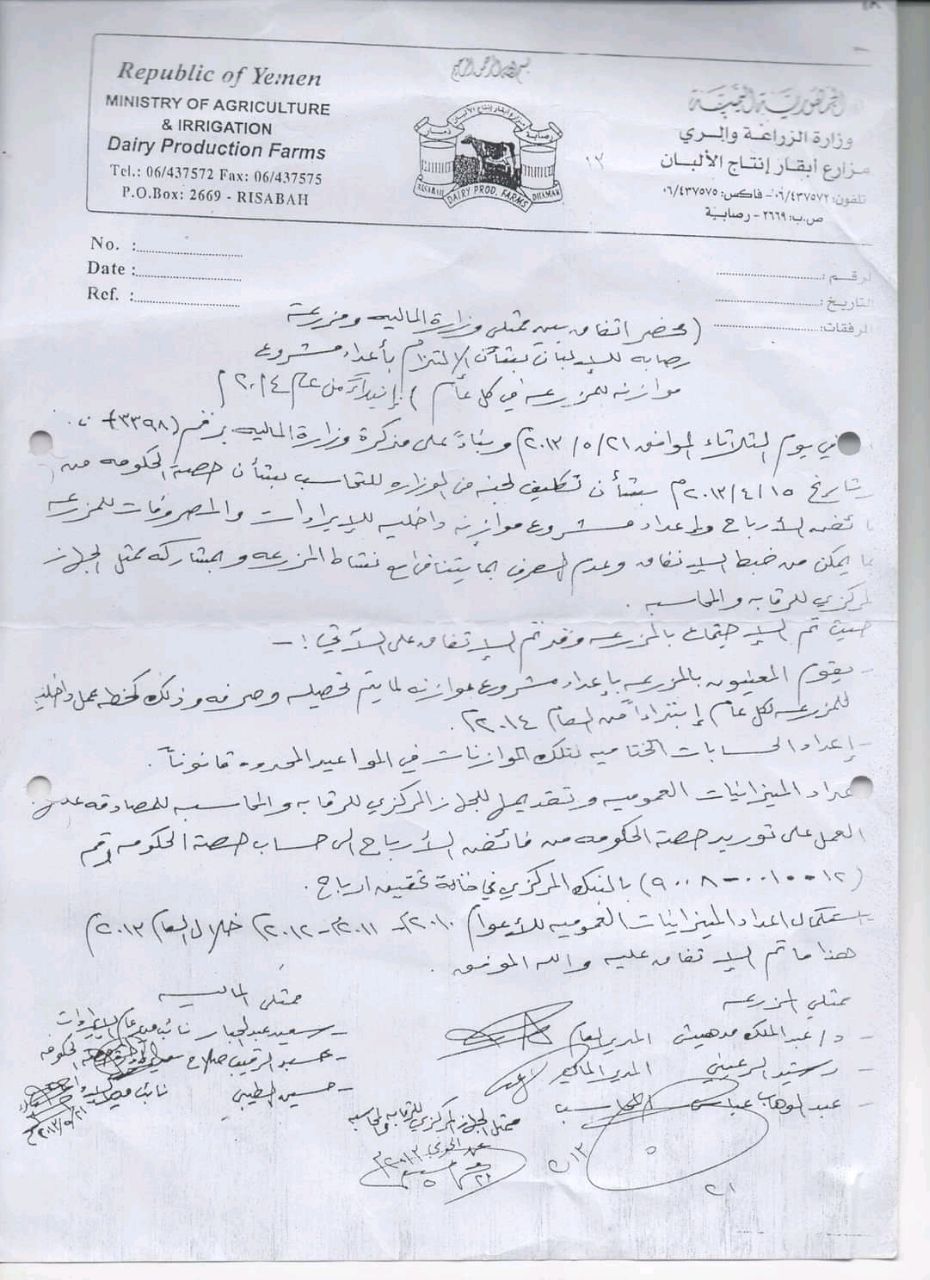 بسم الله الرحمن الرحيم
Republic of Yemen
MINISTRY OF AGRICULTURE
& IRRIGATION
Dairy Production Farms
Tel.: 06/437572 Fax: 06/437575
P.O.Box: 2669 - RISABAH
RISABAH DAIRY PROD. FARMS DHAMAR
١٢
الجمهورية اليمنية
وزارة الزراعة والري
مزارع أبقار إنتاج الألبان
تلفون: ٠٦/٤٣٧٥٧٢ - فاكس: ٠٦/٤٣٧٥٧٥
ص.ب: ٢٦٦٩ - رصابة
No. :
Date :
Ref. :
الرقم :
التاريخ :
المرفقات:
(محضر اتفاق بين ممثلي وزارة الماليه ومزرعة
رصابه للالبان بشأن الالتزام بأعداد مشروع
موازنه للمزرعه في كل عام) إبتداءً من عام ٢٠١٤م
في يوم الثلاثاء الموافق ٢٠١٣/٥/٢١م وبناءً على مذكرة وزارة الماليه برقم (٣٣٩٨
بتاريخ ٢٠١٣/٤/١٥م بشأن تكليف لجنه من الوزاره للتحاسب بشأن حصة الحكومه من
فائض الأرباح وإعداد مشروع موازنه داخليه للإيرادات والمصروفات للمزرعه
بما يمكن من ضبط الانفاق وعدم الصرف بما يتنافى مع نشاط المزرعه وبمشاركه ممثل الجهاز
المركزي للرقابه والمحاسبه .
حيث تم الإجتماع بالمزرعه وقد تم الإتفاق على الآتي :-
- يقوم المعنيون بالمزرعه بإعداد مشروع موازنه لما يتم تحصيله وصرفه وذلك كخطه عمل داخليه
للمزرعه لكل عام إبتداءاً من العام ٢٠١٤م.
- إعداد الحسابات الختاميه لتلك الموازنات في المواعيد المحدده قانوناً .
إعداد الميزانيات العموميه وتقديمها للجهاز المركزي للرقابه والمحاسبه للمصادقه عليها
العمل على توريد حصة الحكومه من فائض الأرباح الى حساب حصة الحكومه رقم
(١٢-٠٠١٠-٩٠٠٨) بالبنك المركزي في حالة تحقيق ارباح .
- استكمال اعداد الميزانيات العموميه للأعوام ٢٠١٠-٢٠١١-٢٠١٢ خلال العام ٢٠١٣م
هذا ما تم الإتفاق عليه والله الموفق .
ممثلي المزرعه
- د/ عبدالملك مدهيش المدير العام
- رشيد الرعيني المدير المالي
- عبدالوهاب عباس المحاسب
ممثلي الماليه
- سعيد عبدالجبار نائب مدير عام الإيرادات
- عبدالرقيب صلاح
- حسين الطيبي
ممثل الجهاز المركزي للرقابه والمحاسبه